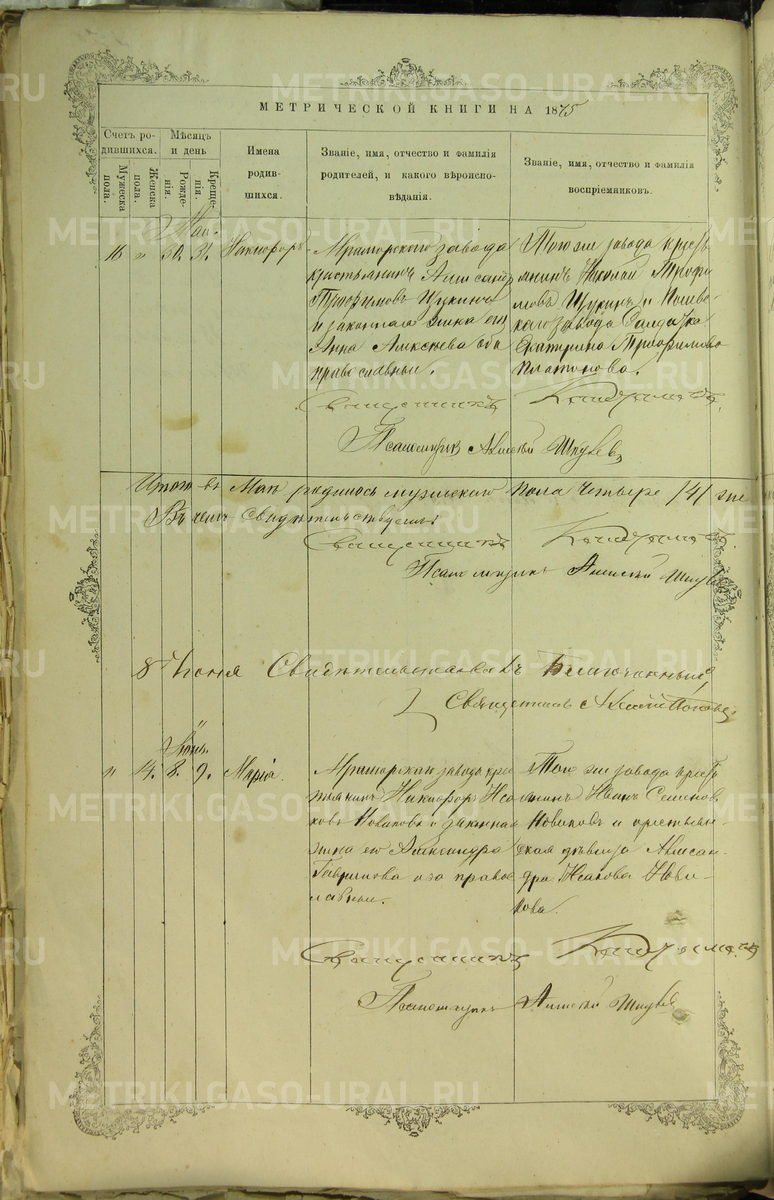 МЕТРИЧЕСКОЙ КНИГИ НА 1875
Счетъ родившихся.
Мужеска пола.
Женска пола.
Мѣсяцъ и день
Рожденія.
Крещенія.
Имена родившихся.
Званіе, имя, отчество и фамилія родителей, и какого вѣроисповѣданія.
Званіе, имя, отчество и фамилія воспріемниковъ.
Май.
16 " 30. 31. Никифоръ
Мраморскаго завода
крестьянинъ Александръ
Трофимовъ Щукинъ
и законная жена его
Анна Алексѣева оба
православные.
Того же завода кресть
янинъ Николай Трофи
мовъ Щукинъ и
завода Солдатка
Екатерина Трофимова
Платонова.
Священникъ
Псаломщикъ Алексѣй
Итого въ Маѣ родилось мужескаго пола четыре /4/
Въ чемъ свидѣтельствуемъ:
Священникъ
Псаломщикъ Алексѣй
8 Іюня Свидѣтельствовалъ Благочинный
Священникъ Алексѣй Поповъ
Іюнь.
" 14. 8. 9. Марія.
Мраморскаго завода крес
тьянинъ Никифоръ Иса
ковъ Новиковъ и законная
жена его Александра
Гаврилова оба правос
лавные.
Того же завода кресть
янинъ Иванъ Семеновъ
Новиковъ и крестьян
ская дѣвица Алексан
дра Исакова Нови
кова.
Священникъ
Псаломщикъ Алексѣй
METRIKI.GASO-URAL.RU